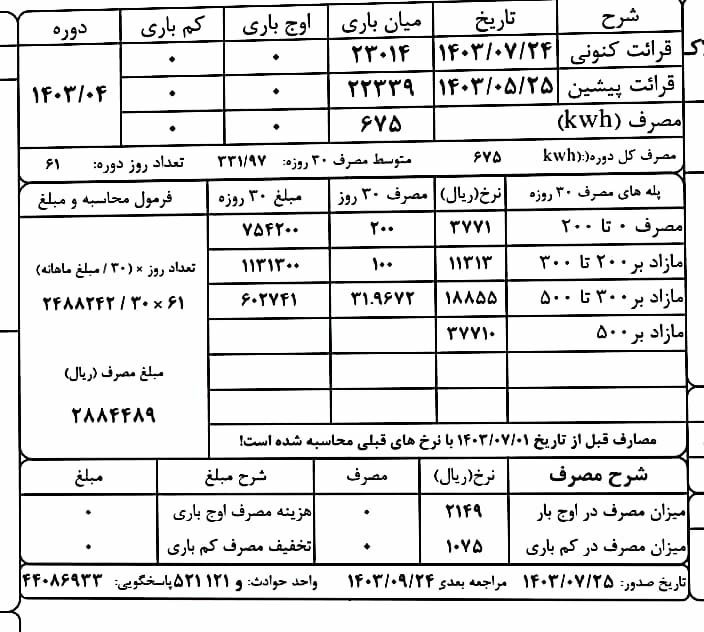 شرح تاریخ میان باری اوج باری کم باری دوره
قرائت کنونی ۱۴۰۳/۰۷/۲۴ ۲۳۰۱۴ ۰ ۰ ۱۴۰۳/۰۴
قرائت پیشین ۱۴۰۳/۰۵/۲۵ ۲۲۳۳۹ ۰ ۰
مصرف (kwh) ۶۷۵ ۰ ۰
مصرف کل دوره(kwh:) ۶۷۵ متوسط مصرف ۳۰ روزه: ۳۳۱/۹۷ تعداد روز دوره: ۶۱
پله های مصرف ۳۰ روزه نرخ(ریال) مصرف ۳۰ روز مبلغ ۳۰ روزه فرمول محاسبه و مبلغ
مصرف ۰ تا ۲۰۰ ۳۷۷۱ ۲۰۰ ۷۵۴۲۰۰
مازاد بر ۲۰۰ تا ۳۰۰ ۱۱۳۱۳ ۱۰۰ ۱۱۳۱۳۰۰ تعداد روز × (۳۰ / مبلغ ماهانه)
مازاد بر ۳۰۰ تا ۵۰۰ ۱۸۸۵۵ ۳۱.۹۶۷۲ ۶۰۲۷۴۱ ۶۱ × ۳۰ / ۲۴۸۸۲۴۲
مازاد بر ۵۰۰ ۳۷۷۱۰
مبلغ مصرف (ریال)
۲۸۸۴۴۸۹
مصارف قبل از تاریخ ۱۴۰۳/۰۷/۰۱ با نرخ های قبلی محاسبه شده است!
شرح مصرف نرخ(ریال) مصرف شرح مبلغ مبلغ
میزان مصرف در اوج بار ۲۱۴۹ ۰ هزینه مصرف اوج باری ۰
میزان مصرف در کم باری ۱۰۷۵ ۰ تخفیف مصرف کم باری ۰
تاریخ صدور: ۱۴۰۳/۰۷/۲۵ مراجعه بعدی ۱۴۰۳/۰۹/۲۴ واحد حوادث: و ۱۲۱ ۵۲۱ پاسخگویی: ۴۴۰۸۶۹۳۳